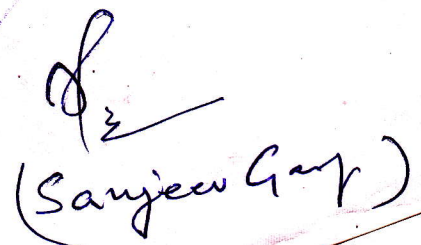 (Sanjeev Garg)